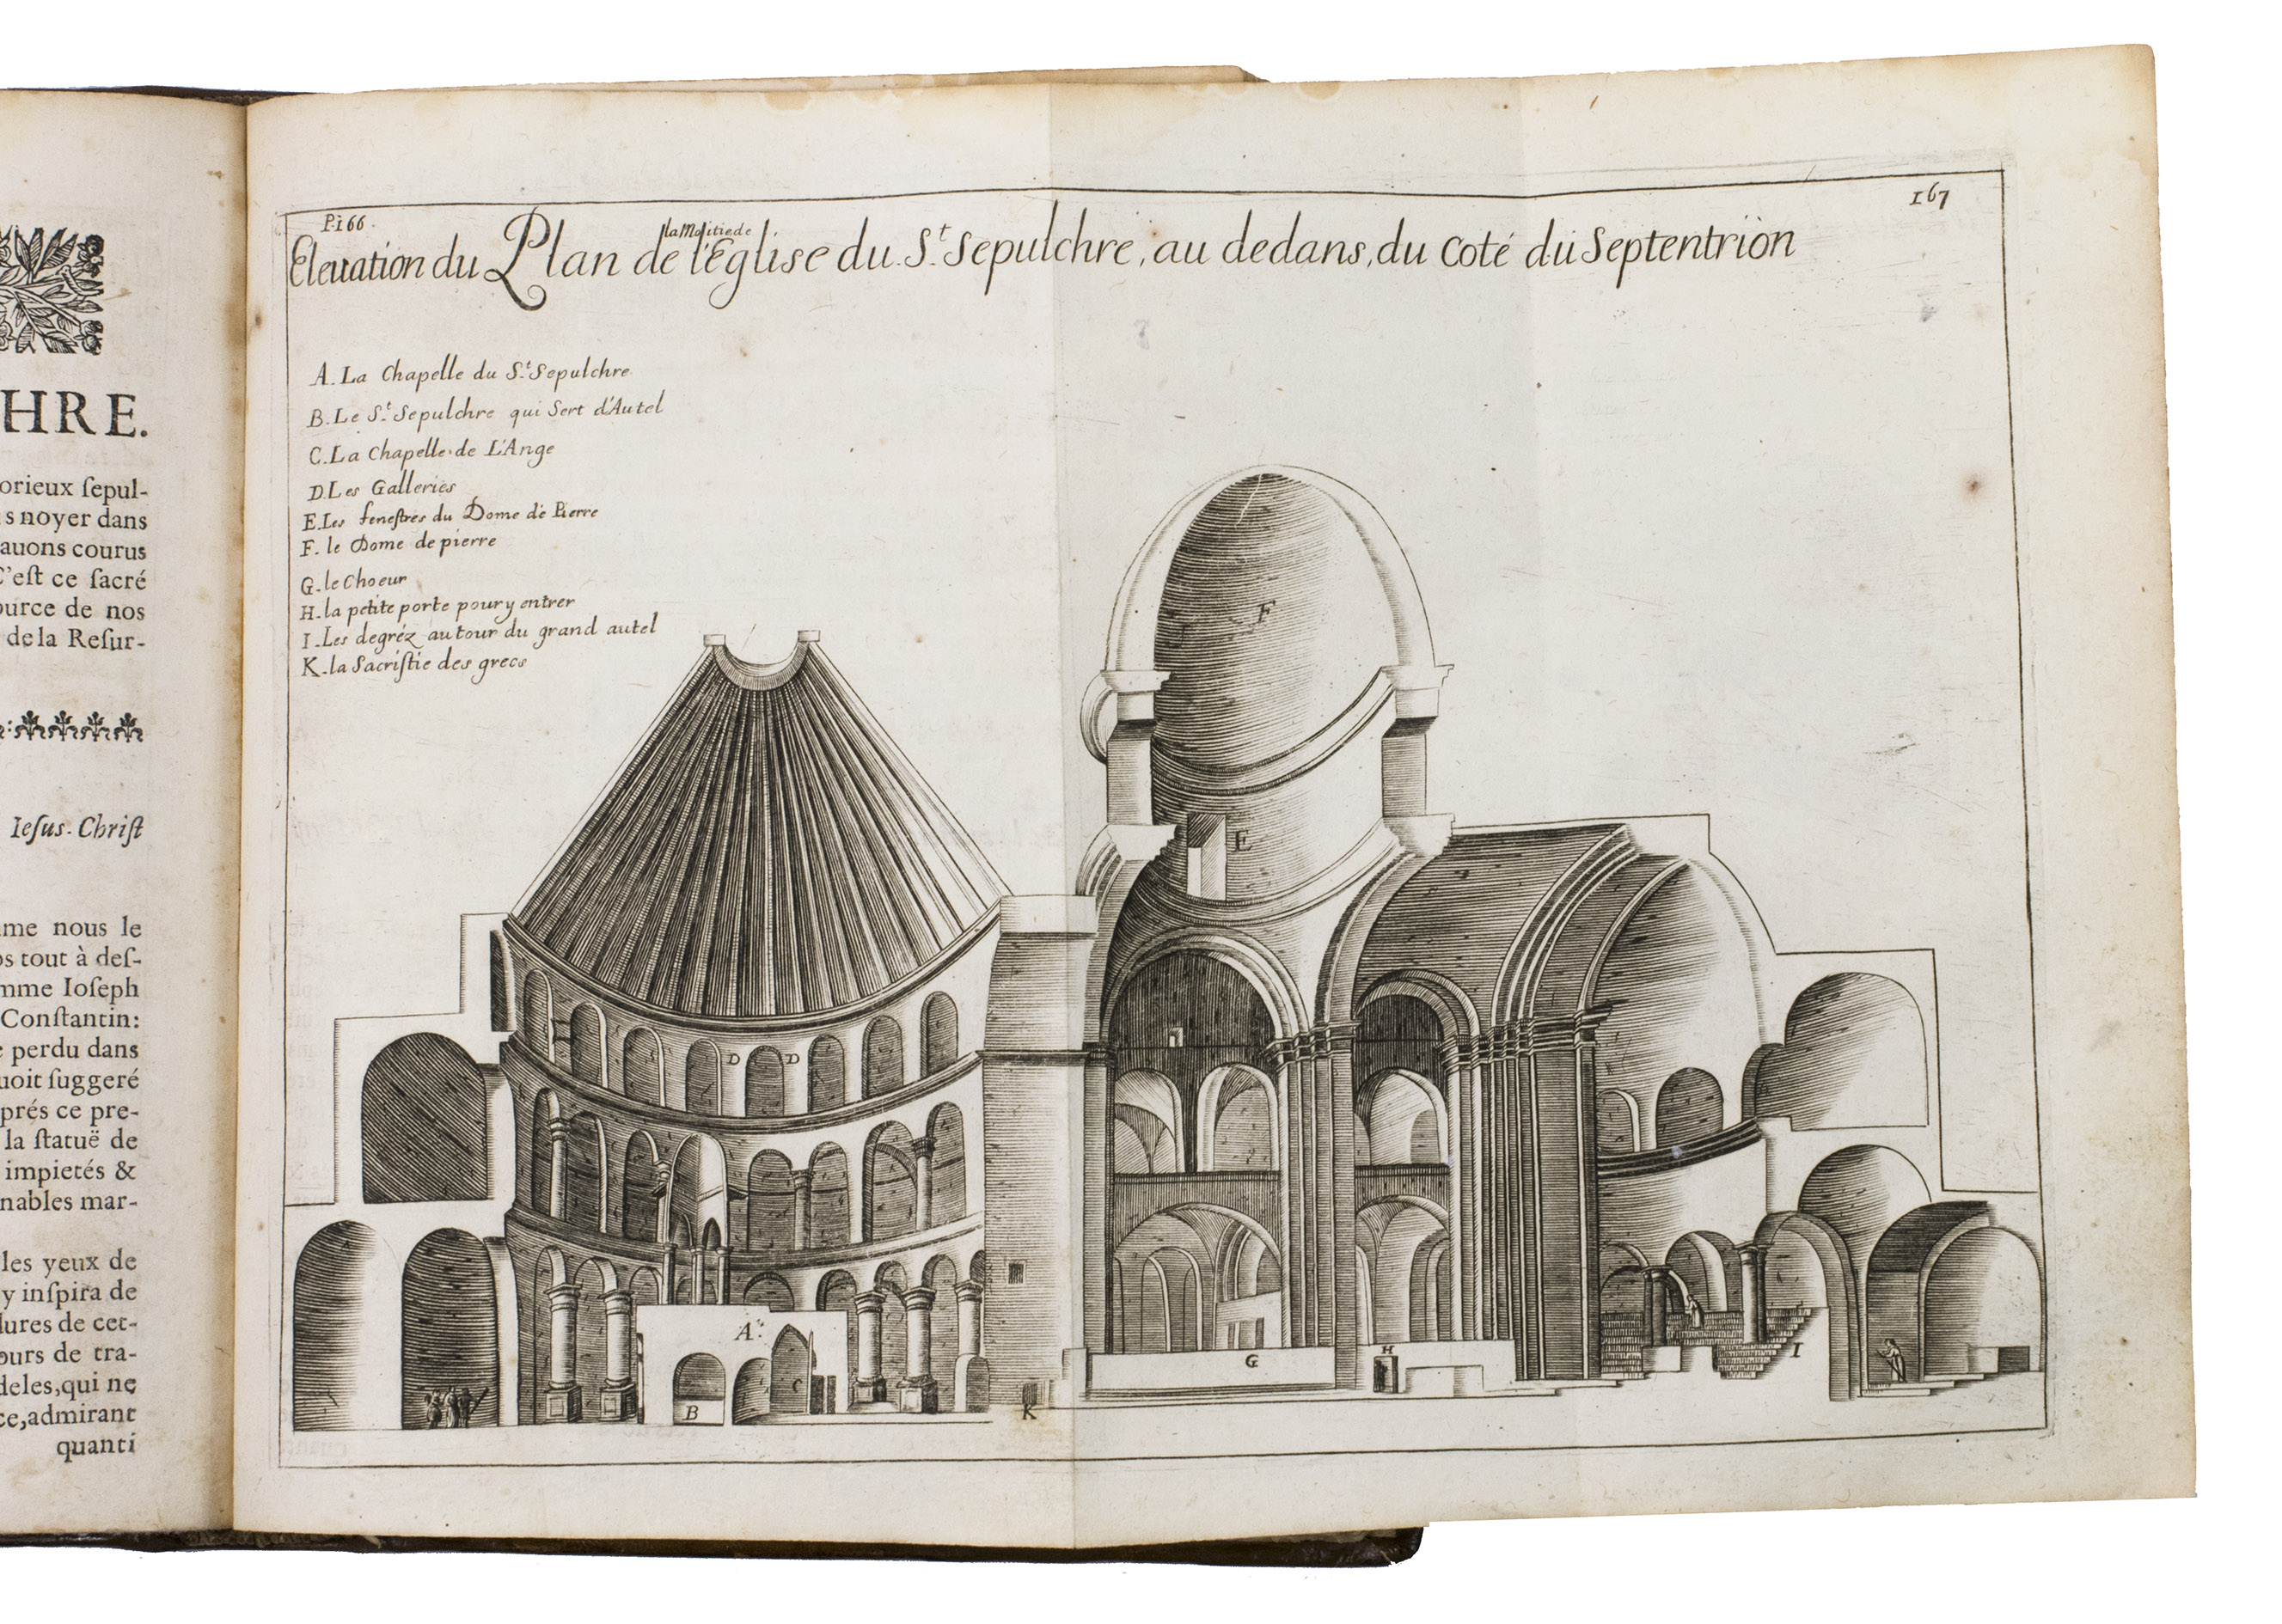 HRE.
orieux ſepul-
s noyer dans
auons courus
C'eſt ce ſacré
ource de nos
de la Reſur-
Ieſus-Chriſt
me nous le
os tout à deſ-
mme Ioſeph
Conſtantin:
e perdu dans
uoit ſuggeré
prés ce pre-
la ſtatuë de
impietés &
nables mar-
les yeux de
y inſpira de
dures de cet-
ours de tra-
deles, qui ne
ce, admirant
quanti
P.166.
167
la Moitie de
Eleuation du Plan de l'Eglise du St. Sepulchre, au dedans, du Coté du Septentrion
A. La Chapelle du St. Sepulchre
B. Le St. Sepulchre qui Sert d'Autel
C. La Chapelle de L'Ange
D. Les Galleries
E. Les feneſtres du Dome de Pierre
F. le Dome de pierre
G. le Choeur
H. la petite porte pour y entrer
I. Les degréz autour du grand autel
K. la Sacriſtie des grecs
F
E
D D
A.
H
G
I
C
B
K